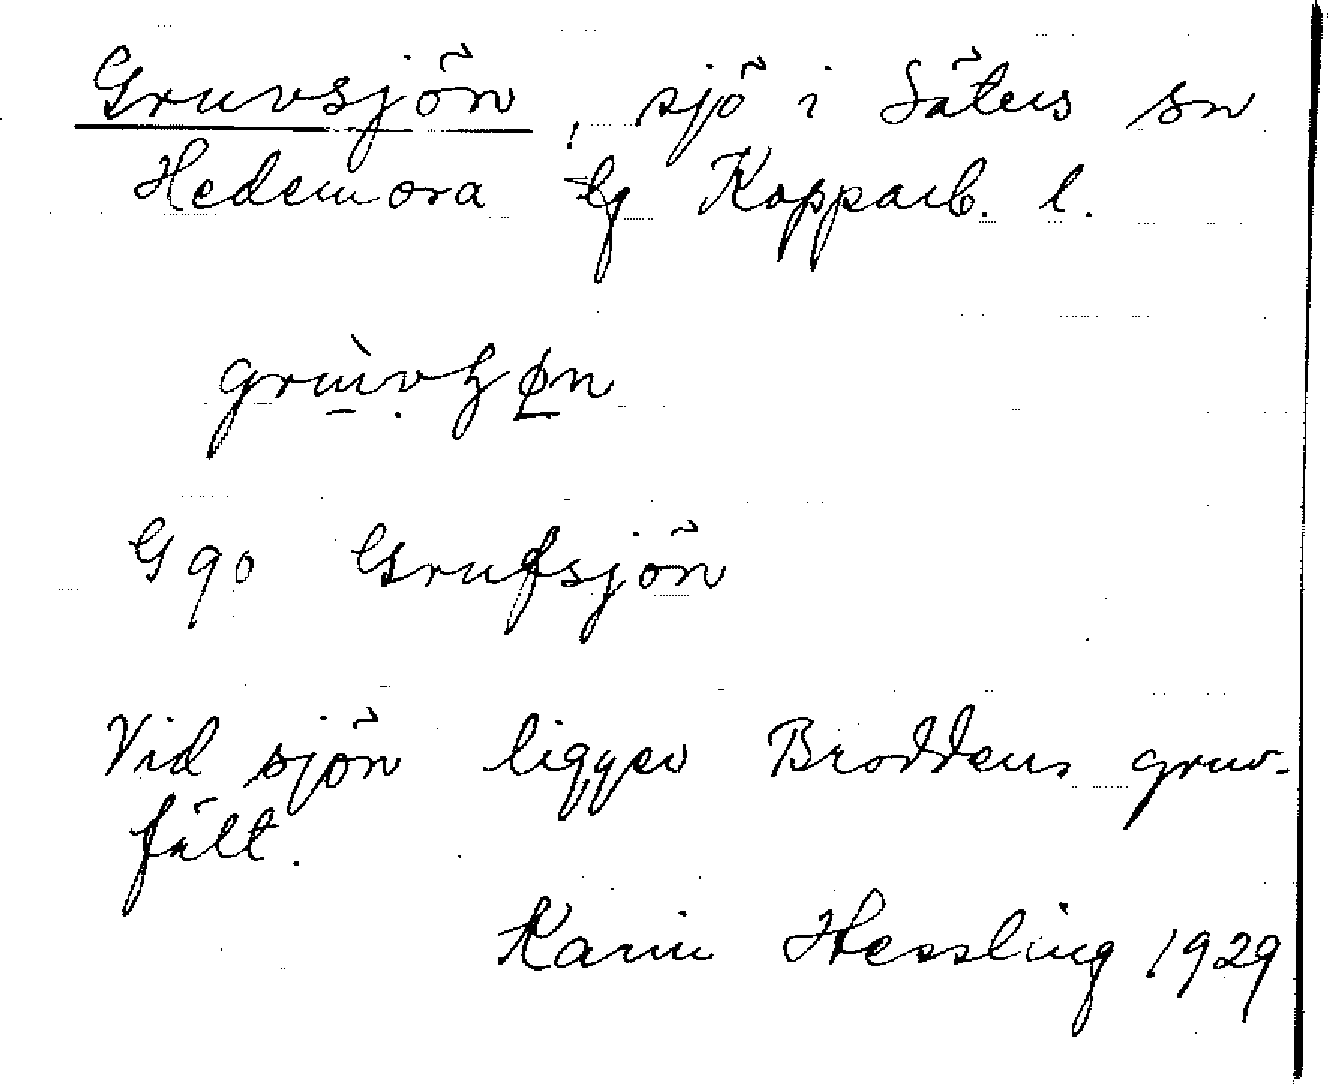 Gruvsjön, sjö i Säters sn
Hedemora tg Kopparb. l.
G 90 Grufsjön
Vid sjön ligger Broddens gruv-
fält.
Karin Hessling 1929